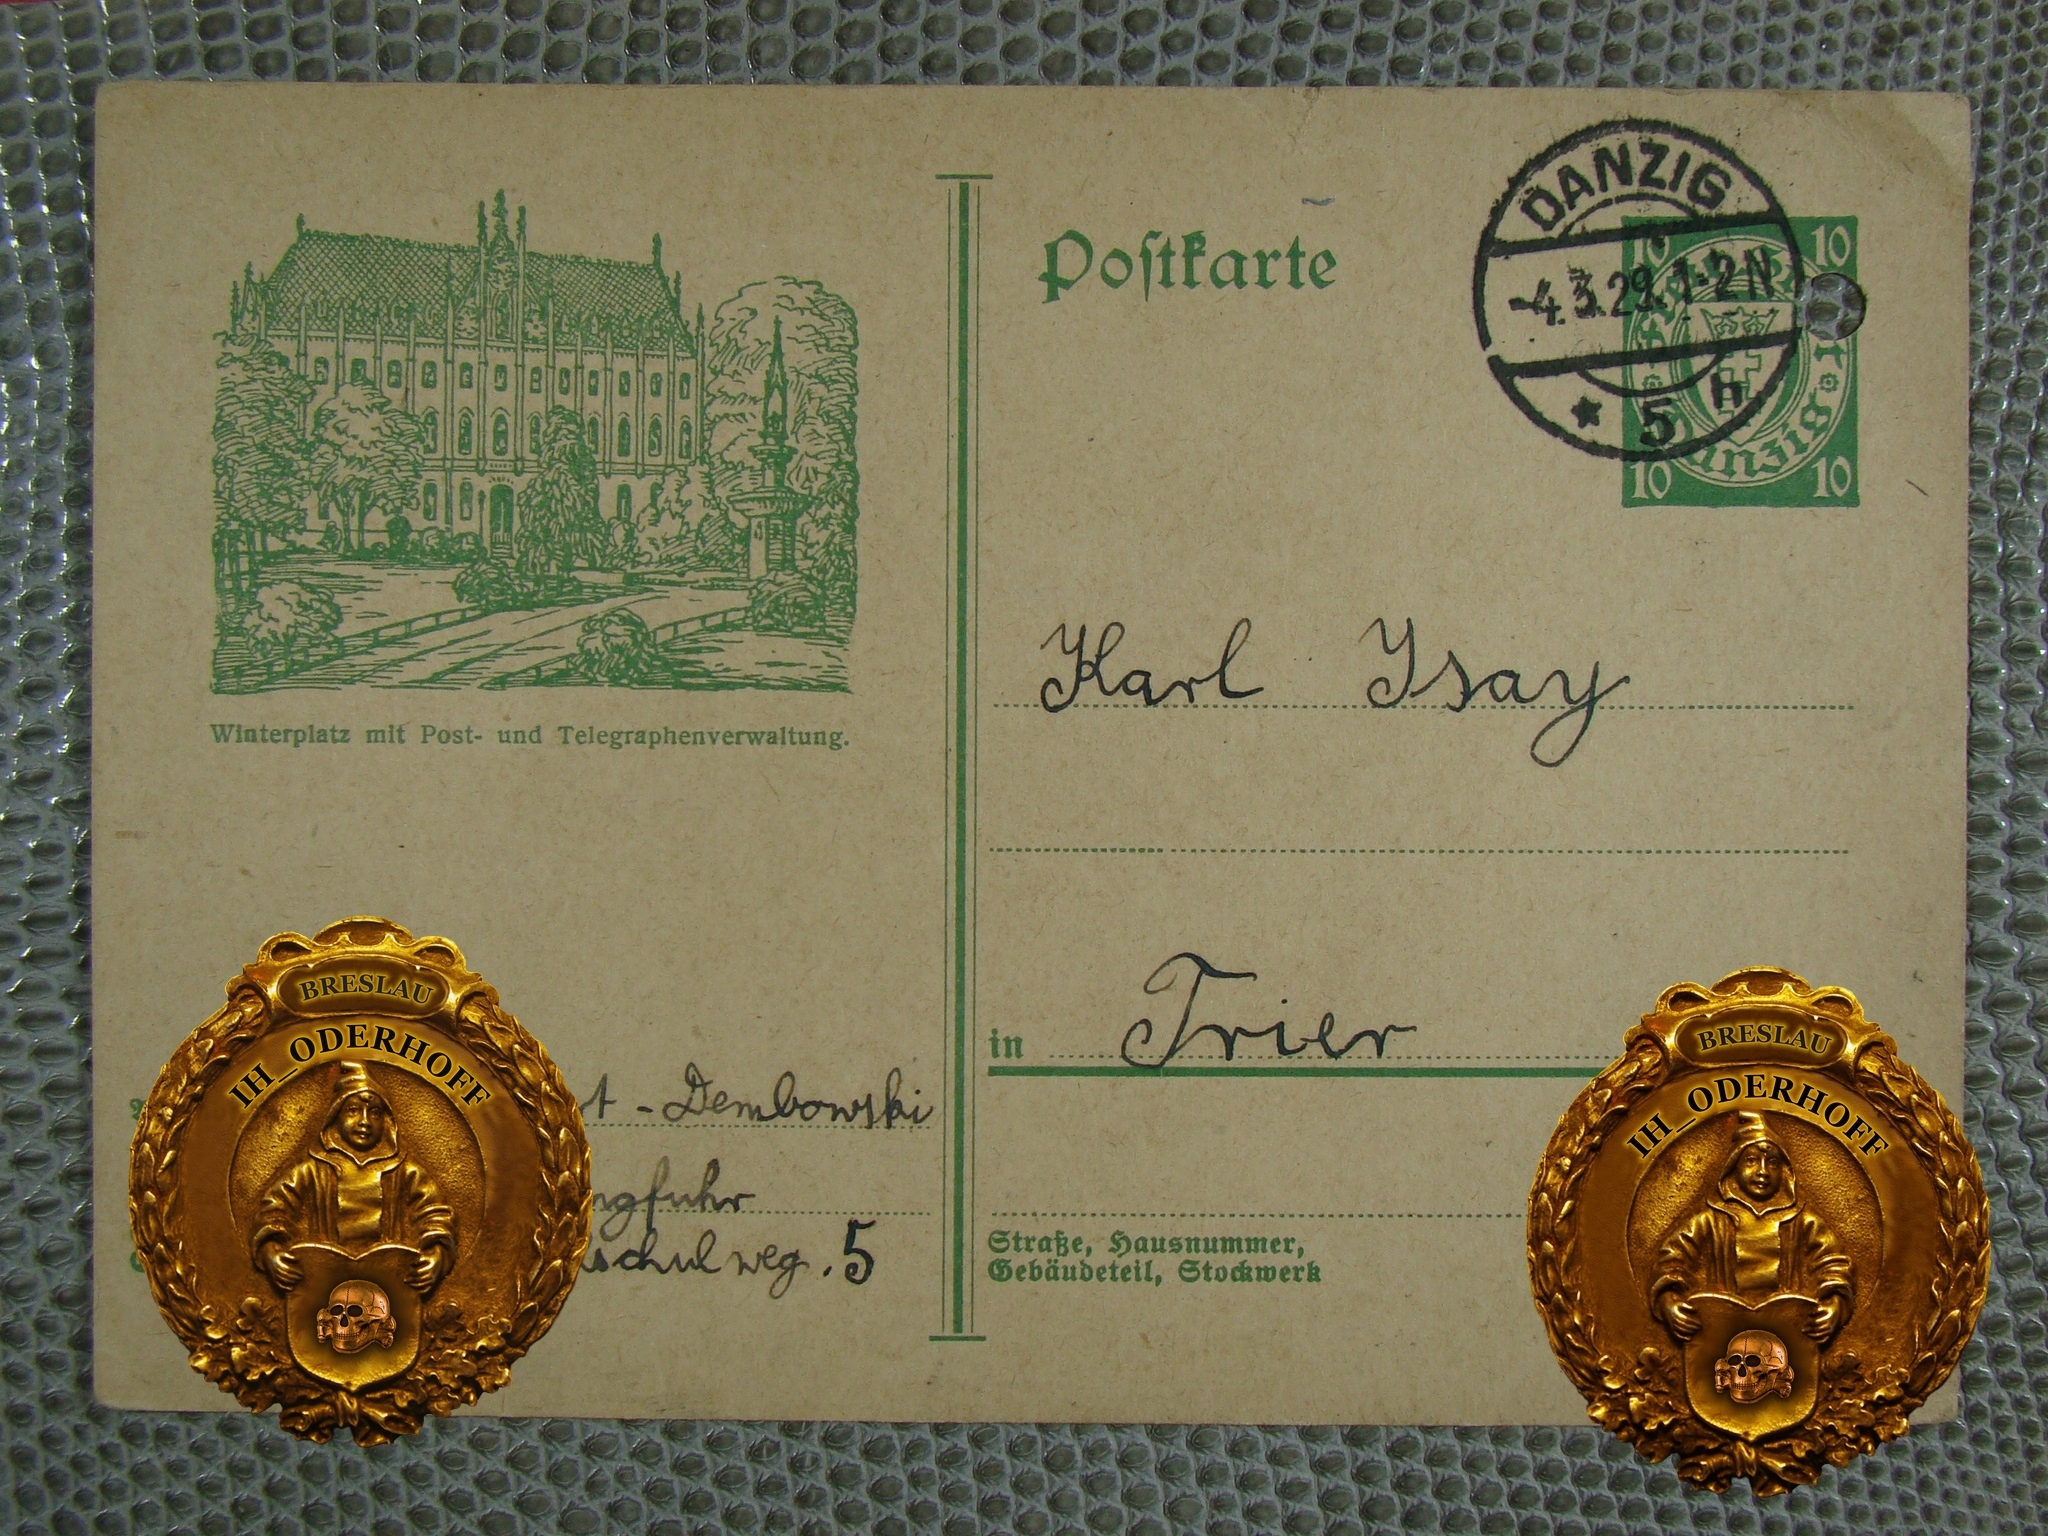 Postkarte
DANZIG
-4.3.29.1-2N
* 5 h
10 10
Freie Stadt Danzig
10 10
Winterplatz mit Post- und Telegraphenverwaltung.
Karl Isay
in Trier
Straße, Hausnummer,
Gebäudeteil, Stockwerk
t - Dembowski
ngfuhr
schulweg. 5
BRESLAU
IH_ODERHOFF
BRESLAU
IH_ODERHOFF